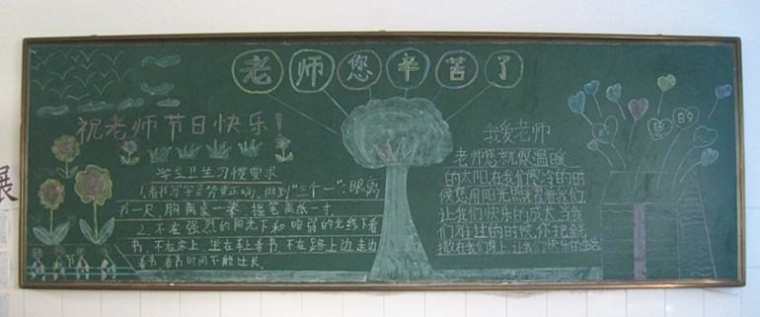 老师您辛苦了
祝老师节日快乐！
学生卫生习惯要求
1.看书写字姿势要正确，做到"三个一"：眼离
书一尺，胸离桌一拳，握笔离纸一寸
2.不在强烈的阳光下和暗弱的光线下看
书，不在床上，坐在车上看书，不在路上边走边
看书，看书时间不能过长
我爱老师
老师您就像温暖
的太阳，在我们寒冷的时
候您用阳光照
让我们快乐的成长，当我
们
撒在我们身上，让我们快乐的
的
展